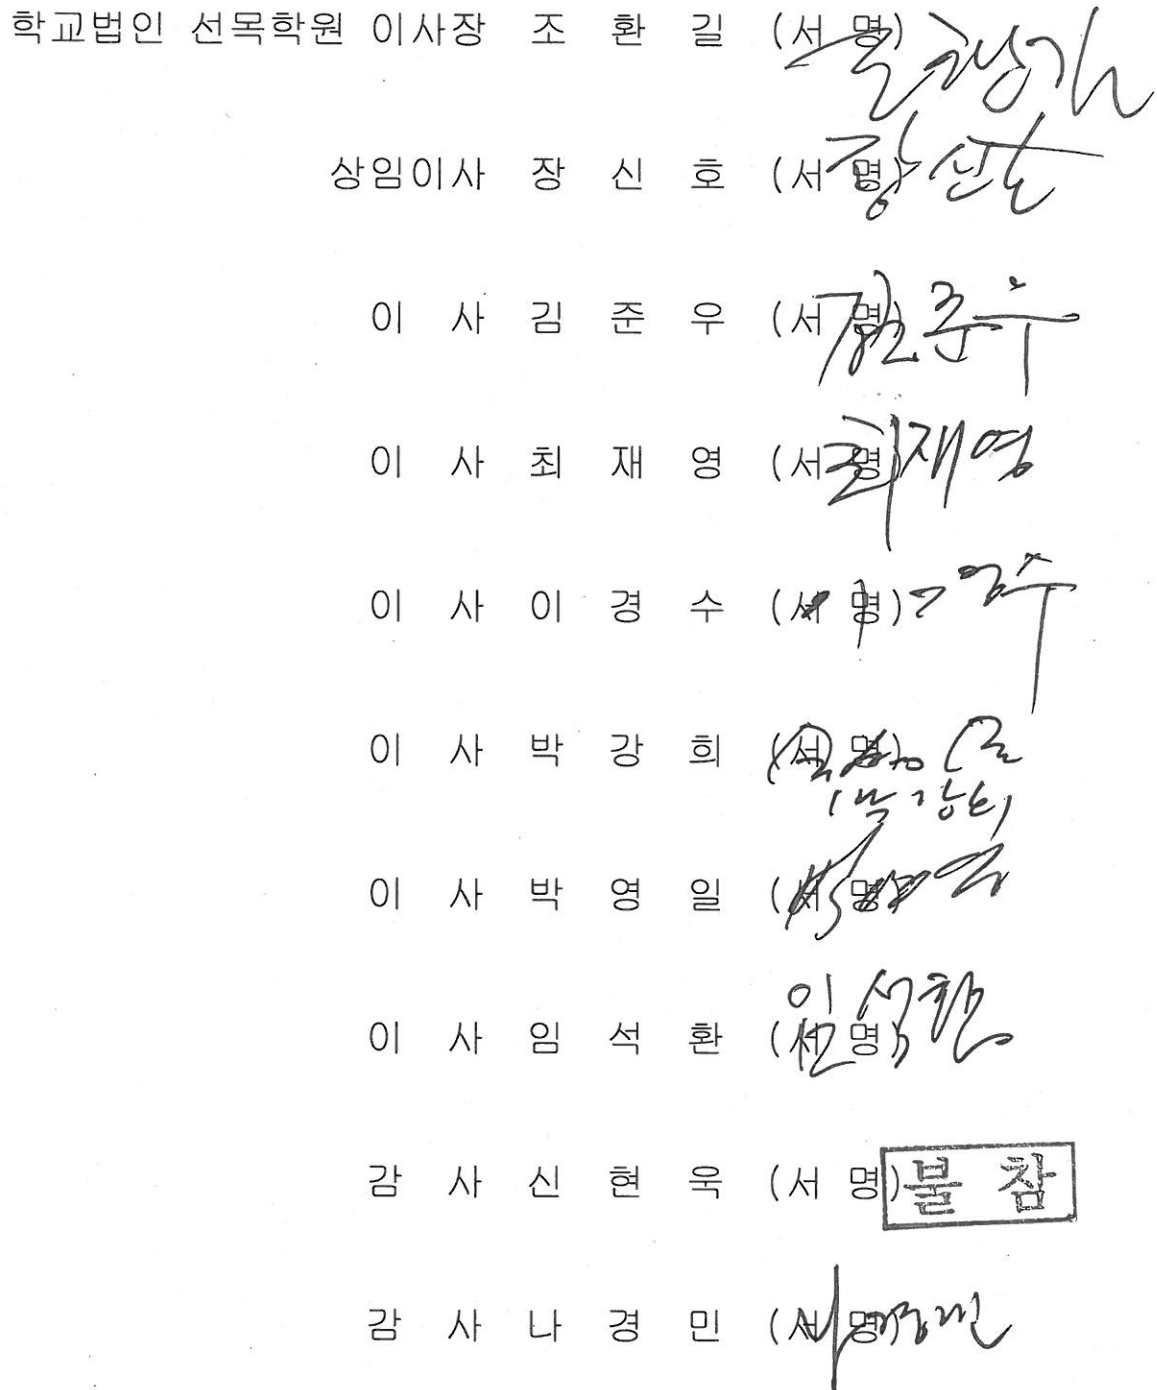 학교법인 선목학원 이사장 조 환 길 (서 명) 조환길
상임이사 장 신 호 (서 명) 장신호
이 사 김 준 우 (서 명) 김준우
이 사 최 재 영 (서 명) 최재영
이 사 이 경 수 (서 명) 이경수
이 사 박 강 희 (서 명)
박강희
이 사 박 영 일 (서 명)
이 사 임 석 환 (서 명) 임석환
감 사 신 현 욱 (서 명) 불 참
감 사 나 경 민 (서 명) 나경민